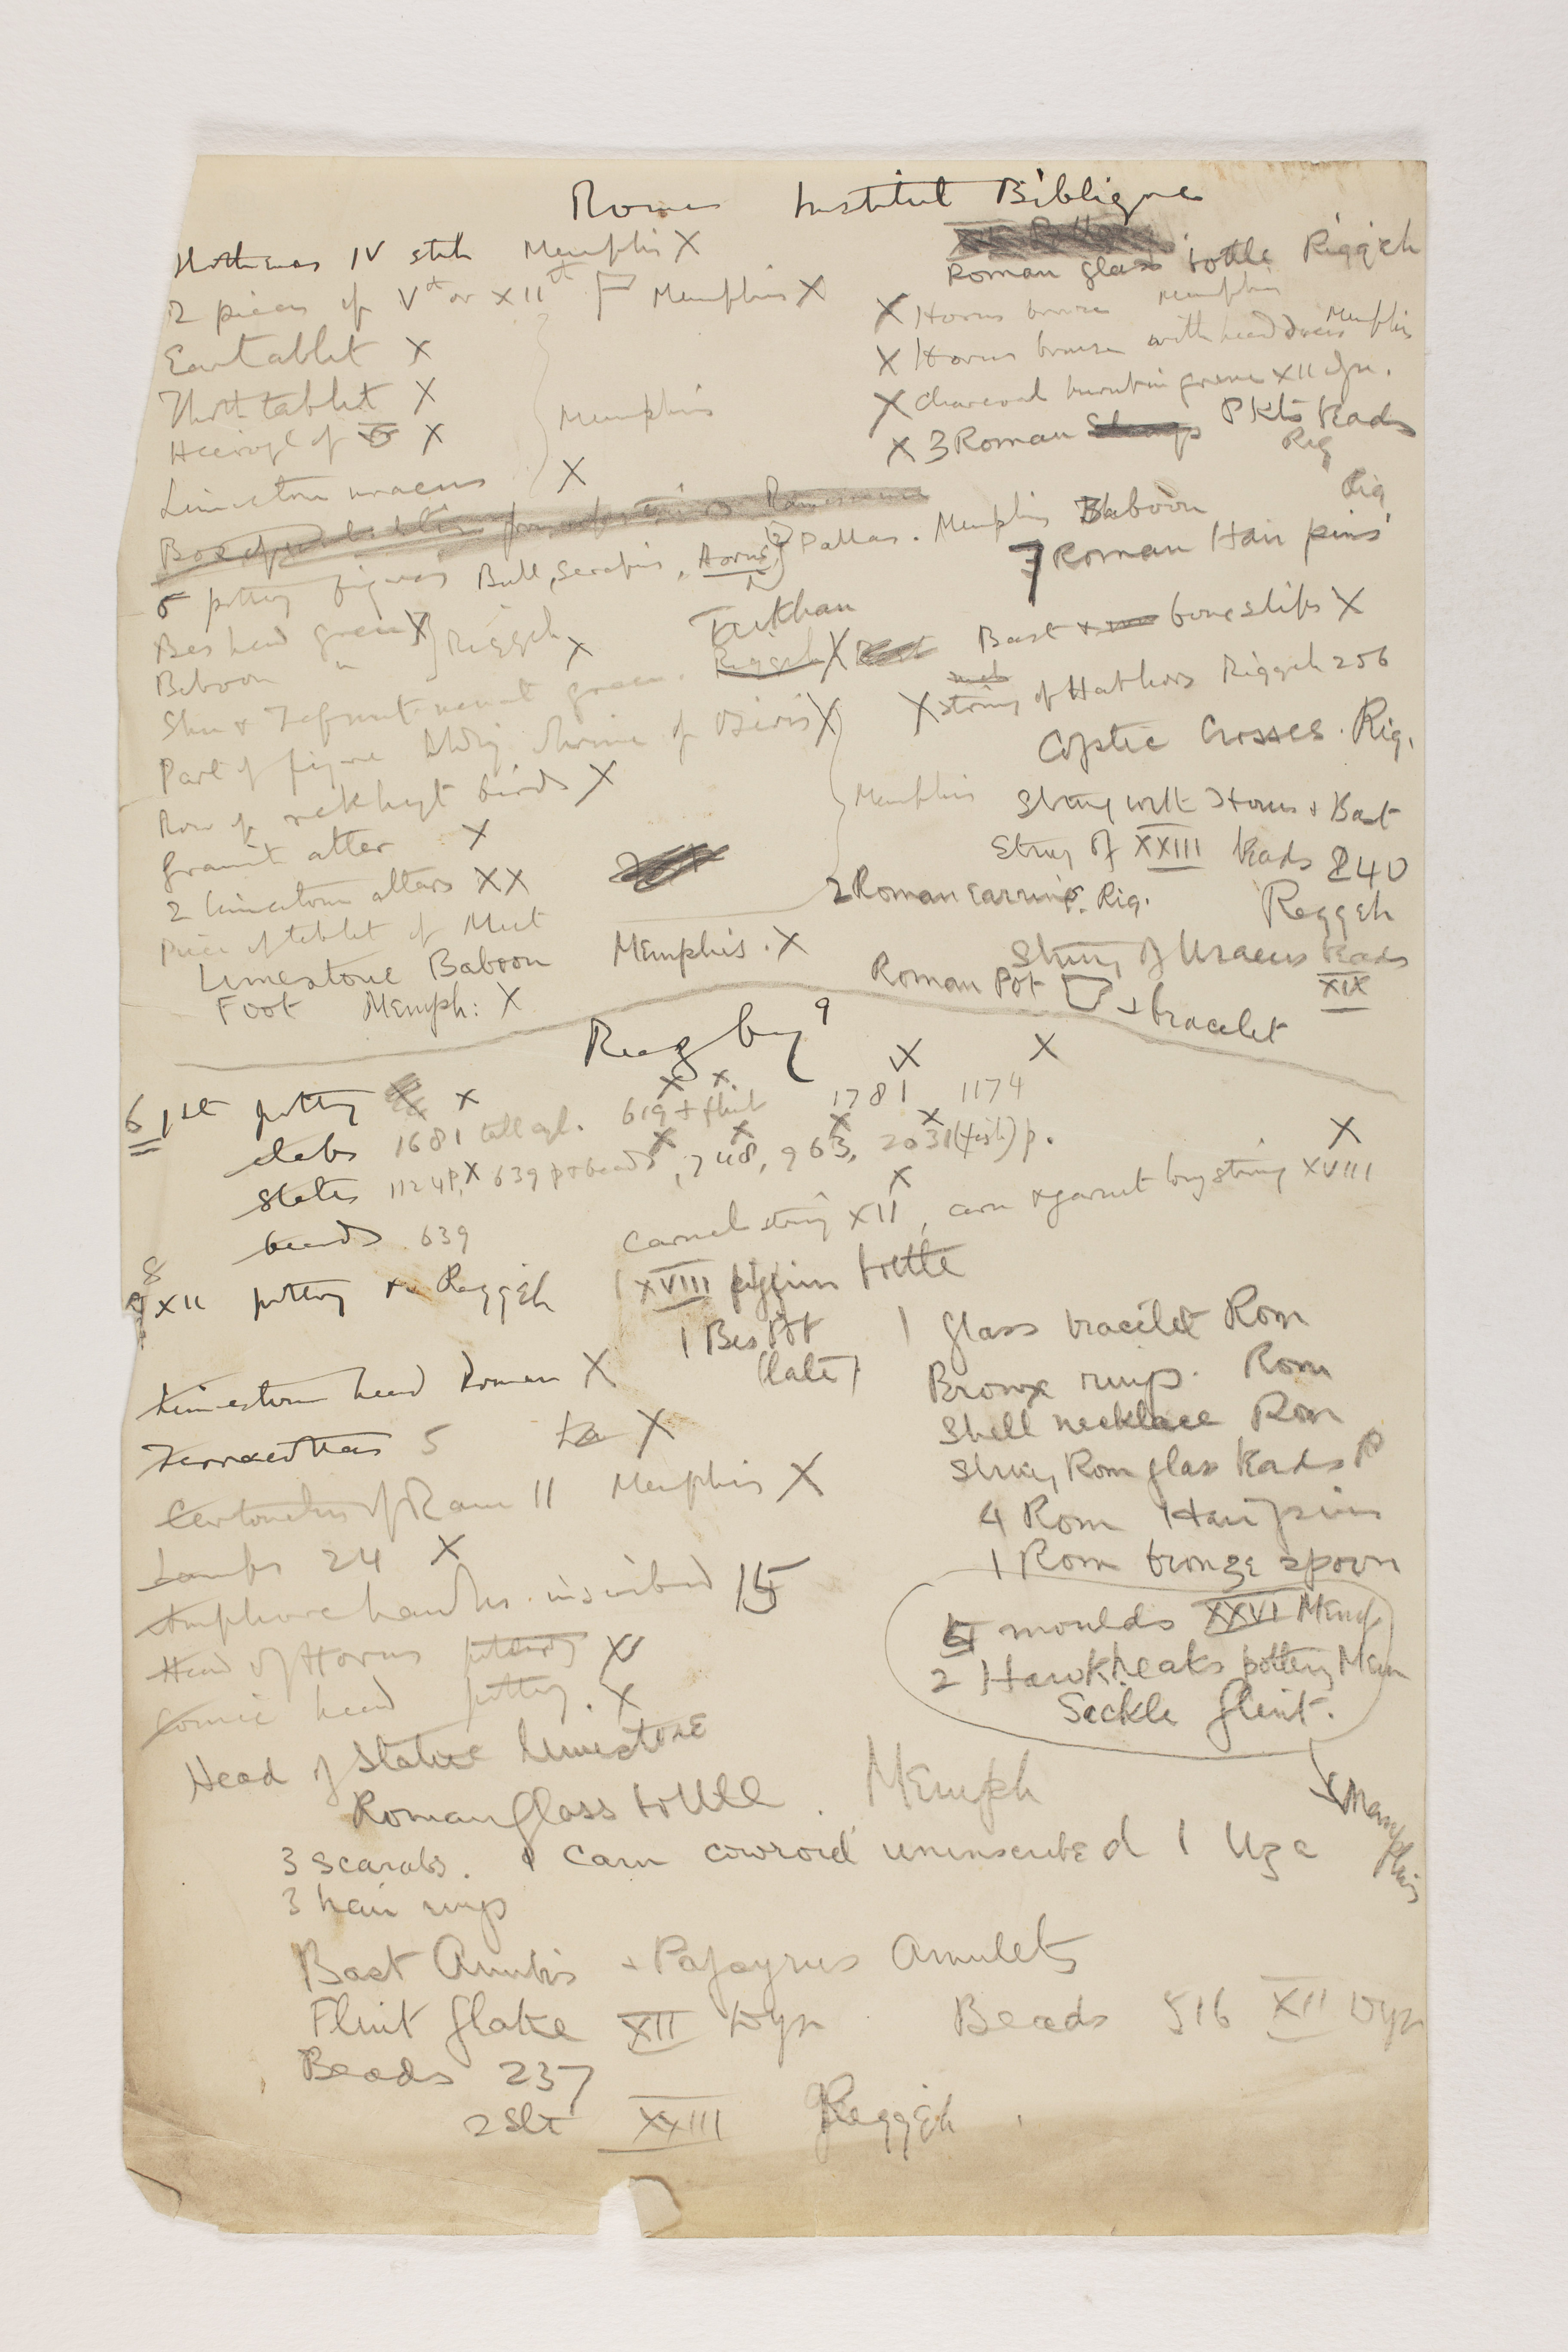 Rome Institut Biblique
Thothmes IV stele Memphis X
2 pieces of Vth or XIIth Memphis X
Ear tablet X
Thoth tablet X
Hierogl of X
Memphis
Limestone uraeus X
Roman glass bottle Riqqeh
X Horus bronze Memphis
X Horus bronze with headdress Memphis
X Charcoal burnt in grave XII dyn.
X 3 Roman Pkts beads
Riq
5 pottery figures Bull, Serapis, Horus, (2) Pallas. Memphis Baboon
7 Roman Hair pins
Riq
Bes head green X Riqqeh
Baboon " X
Tarkhan
Shu & Tefnut green. Riqqeh X
Bast + bone slips X
X string of Hathors Riqqeh 256
Part of figure holdg shrine of Osiris X
Coptic Crosses. Riq.
Row of rekhyt birds X
Memphis
Granit altar X
2 limestone altars XX
Piece of tablet of Mut
String with Horus + Bast
String of XXIII beads 240
Riqqeh
2 Roman earrings. Riq.
Limestone Baboon Memphis. X
Foot Memph: X
String of Uraeus beads
XIX
Roman Pot + bracelet
Rugby 9
6 1st pottery X X
slabs 1681 tall cyl. 619 + flint 1781 1174
slates 1124 p, X 639 p + beads, 748, 963, 2031 (fish) p.
beads 639
Carnel string XII, carn & garnet long string XVIII
8
XII pottery Riqqeh
1 XVIII pilgrim bottle
1 Bes Pot
(late)
Limestone head Roman X
Terracottas 5 X
Cartouches of Ram II Memphis X
Lamps 24 X
Amphora handles inscribed 15
Head of Horus pottery X
Comic head pottery. X
1 glass bracelet Rom
Bronze rings. Rom
Shell necklace Rom
String Rom glass beads R
4 Rom Hairpins
1 Rom bronze spoon
5 moulds XXVI Memp
2 Hawk heads pottery Mem
Sickle flint.
Memphis
Head of Statue limestone
Roman glass bottle. Memph
3 scarabs. 1 Carn cowroid uninscribed 1 Uza
3 hair rings
Bast Anubis + Papyrus Amulets
Flint flake XII Dyn Beads 516 XII Dyn
Beads 237
2 Slt XXIII Riqqeh.